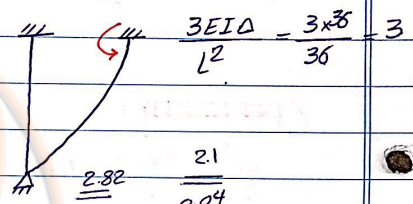 3EIΔ / L² = 3×36 / 36 = 3
2.82
2.1